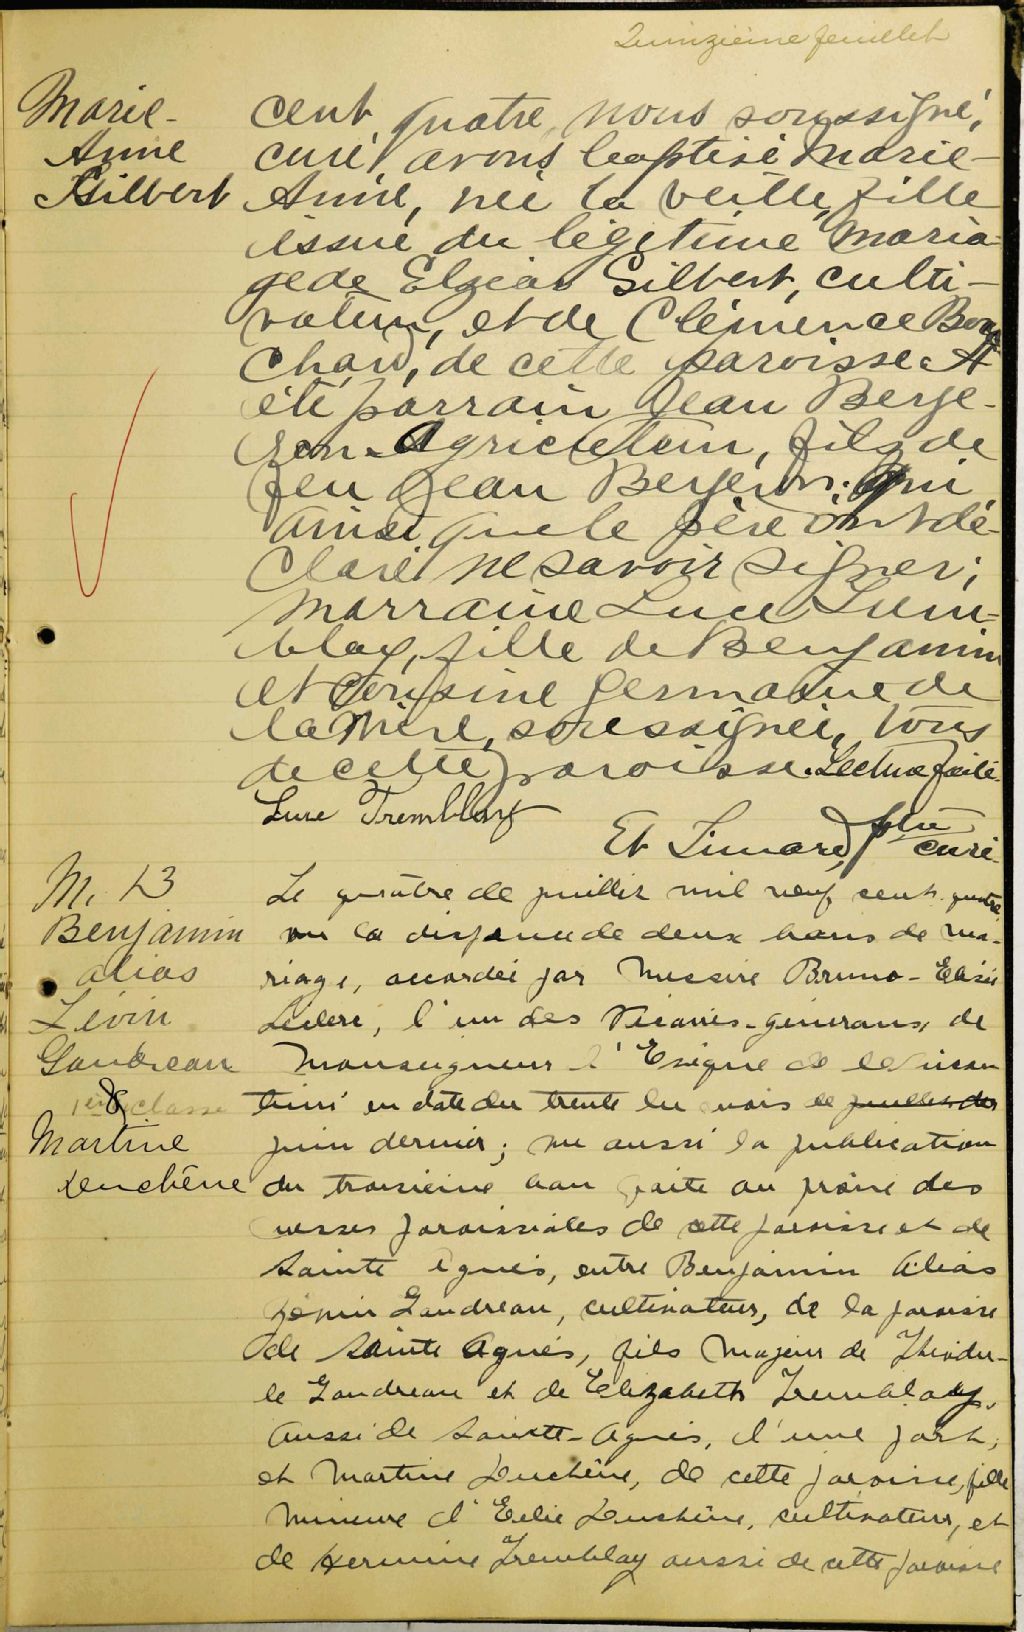 Quinzième feuillet
Marie-
Anne
Gilbert
cent quatre, nous soussigné,
curé avons baptisé Marie-
Anne, née la veille, fille
issue du légitime maria-
ge de Elzéar Gilbert, culti-
vateur, et de Clémence Bou
chard, de cette paroisse. A
été parrain Jean Berge-
ron. Agriculteur, fils de
feu Jean Bergeron; qui
ainsi que le père ont dé-
claré ne savoir signer;
marraine Luce Trem-
blay, fille de Benjamin
et cousine germaine de
la mère, soussignée, tous
de cette paroisse. Lecture faite.
Luce Tremblay
Et Simard, ptre
curé
M. 13
Benjamin
alias
Lévin
Gaudreau
&
1ère classe
Martine
Duchêne
Le quatre de juillet mil neuf cent quatre
vu la dispense de deux bans de ma-
riage, accordée par Messire Bruno-Elisée
Leclerc, l'un des Vicaires-généraux, de
Monseigneur l'Evêque de Chicou
timi en date du trente du mois de juillet der
juin dernier; vu aussi la publication
du troisième ban faite au prône des
messes paroissiales de cette paroisse et de
Sainte Agnès, entre Benjamin Alias
Lévin Gaudreau, cultivateur, de la paroisse
de Sainte Agnès, fils majeur de Théodu-
le Gaudreau et de Elizabeth Tremblay,
aussi de Sainte-Agnès, d'une part,
et Martine Duchêne, de cette paroisse, fille
mineure d'Elie Duchêne, cultivateur, et
de Hermine Tremblay aussi de cette paroisse